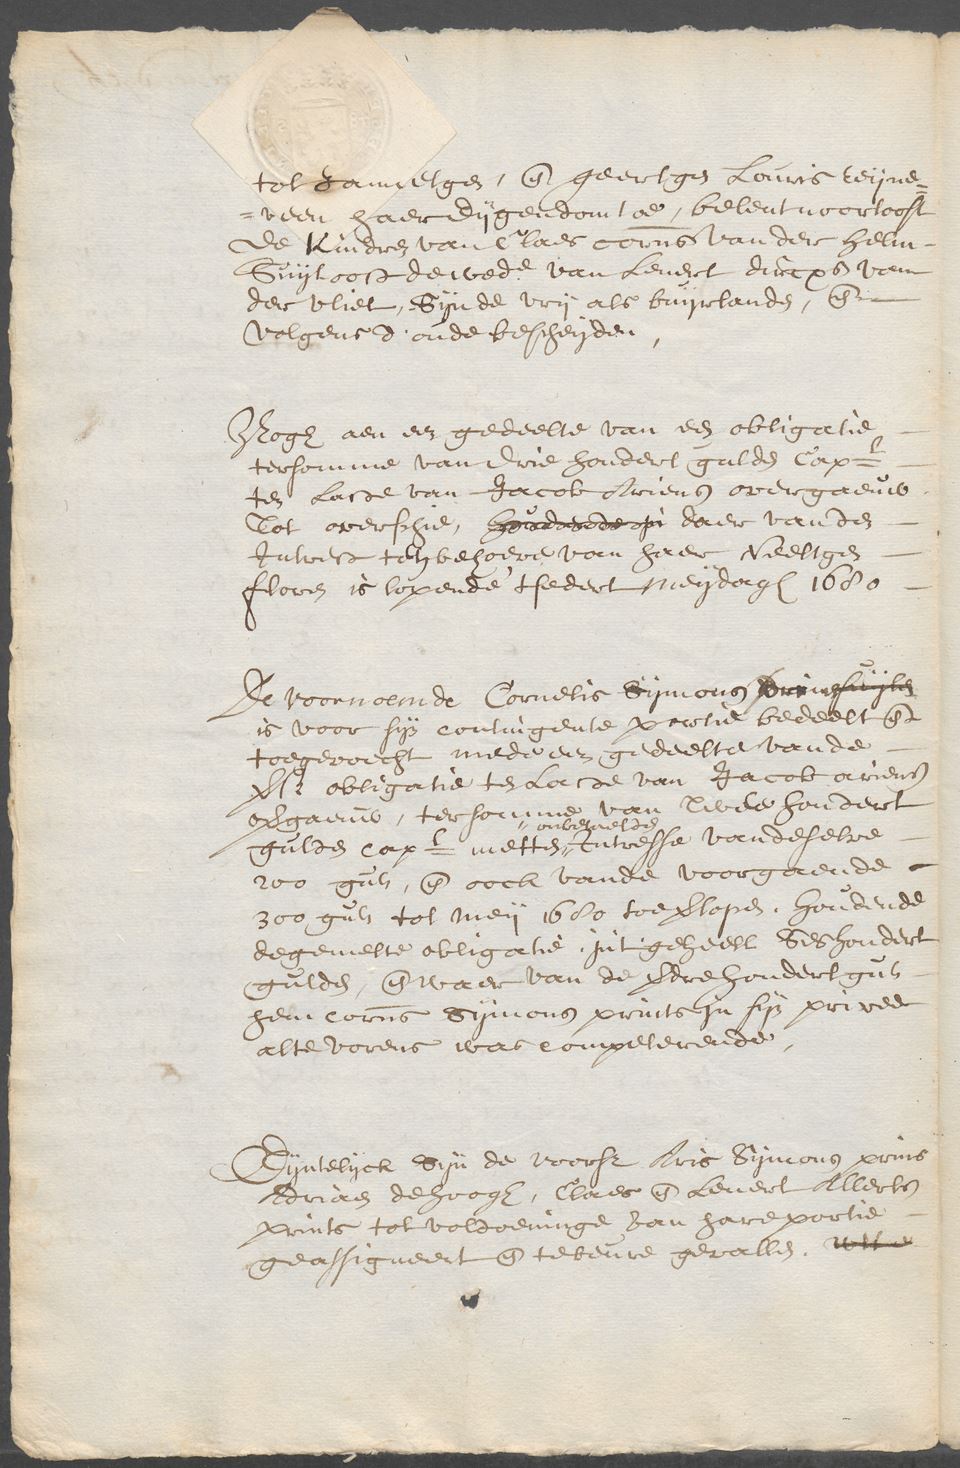 tot Jannetges, en geertges Louris reijne-
=veen haer Eijgendom toe, belent noortoost
de Kindren van Claes Corns vander helm
Suijtoost de wede van Leuert dircxs van
der vliet, Sijnde vrij als buijrlanden, en
volgens d'oude bescheijden,
Nogh aen een gedeelte van een obligatie
ter somme van drie hondert gulden Capl
ten Laste van Jacob Ariens overgaeuw
Tot overschie, houdende daer van den
Intrest ten behoeve van haer Neeltgen
floren is lopende tsedert meijdagh 1680
De voornoemde Cornelis Sijmons
is voor sijn contingente portie bedeelt en
toegevoecht mede een gedeelte vande
obligatie ten Laste van Jacob ariens
overgaeuw, ter somme van Twee hondert
gulden Capl metten onbetaelden Intresse vandeselve
200 guls, en oock vande voorgaende
300 guls tot meij 1680 toe verlopen, houdende
de gemelte obligatie int geheel Seshondert
gulden, en waer van de hondert guls
hem Corns Sijmons prints in sijn privee
alte vorens was competerende,
Eijntelijck Sijn de voorsz Aris Sijmons prins
Adriaen de hoogh, Claes en Leuert Allerts
prints tot voldoeninge van hare portie
geassigneert en te beure gevallen.